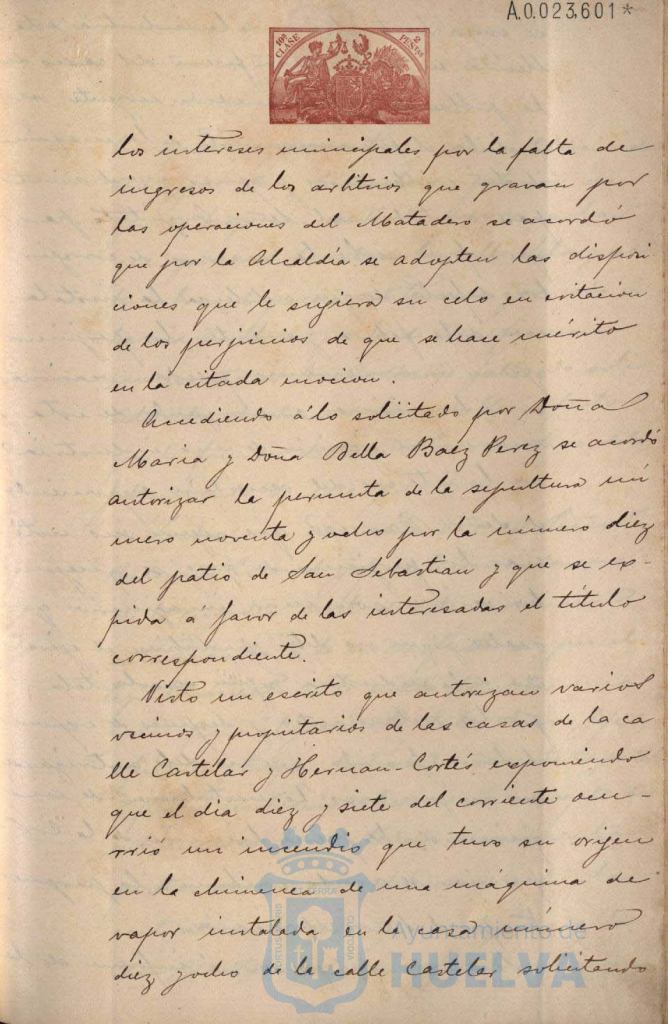 A.0.023,601*
10ª CLASE 2 PESETAS
los intereses municipales por la falta de
ingresos de los arbitrios que gravan por
las operaciones del Matadero se acordó
que por la Alcaldía se adopten las disposi
ciones que le sugiera su celo en evitacion
de los perjuicios de que se hace mérito
en la citada mocion.
Accediendo á lo solicitado por Doña
Maria y Doña Bella Baez Perez se acordó
autorizar la permuta de la sepultura nú
mero noventa y ocho por la número diez
del patio de San Sebastian y que se ex-
pida á favor de las interesadas el título
correspondiente.
Visto un escrito que autorizan varios
vecinos y propietarios de las casas de la ca
lle Castelar y Hernan-Cortés exponiendo
que el dia diez y siete del corriente ocu-
rrió un incendio que tuvo su origen
en la chimenea de una máquina de
vapor instalada en la casa número
diez y ocho de la calle Castelar solicitando
Ayuntamiento de
HUELVA